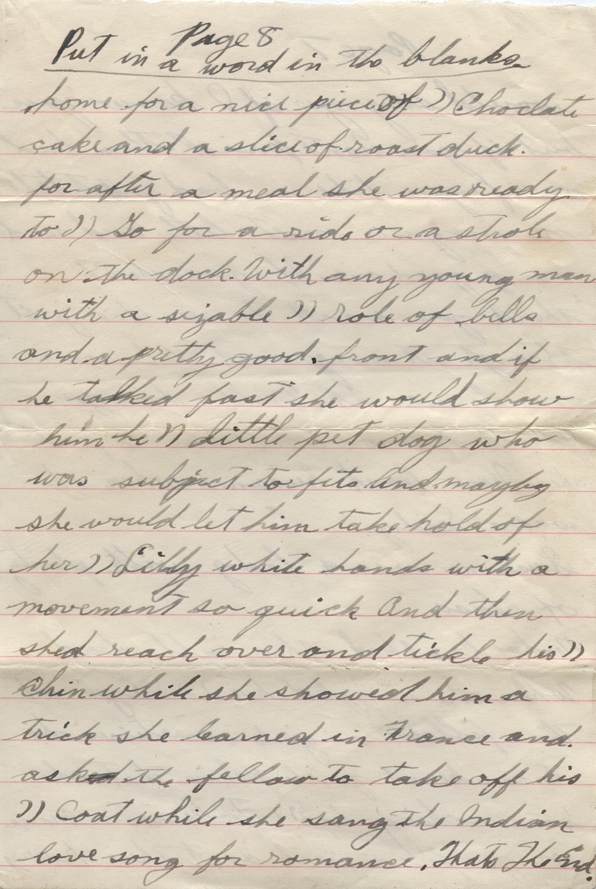 Page 8
Put in a word in the blanks
home for a nice piece of )) Choclate
cake and a slice of roast duck.
for after a meal she was ready
to )) Go for a ride or a strole
on the dock. With any young man
with a sizable )) role of bills
and a pretty good. front and if
he talked fast she would show
him he )) Little pet dog who
was subject to fits and mayby
she would let him take hold of
her )) Lilly white hands with a
movement so quick And then
shed reach over and tickle his ))
Chin while she showed him a
trick she learned in France and.
asked the fellow to take off his
)) Coat while she sang the Indian
love song for romance. Thats The End.